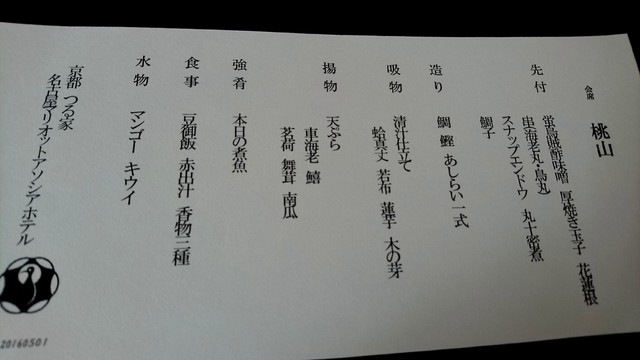 会席 桃山
先付 蛍烏賊酢味噌 厚焼き玉子 花蓮根
串(海老丸・鳥丸)
スナップエンドウ 丸十密煮
鯛子
造り 鯛 鰹 あしらい一式
吸物 清汁仕立て
蛤真丈 若布 蓮芋 木の芽
揚物 天ぷら
車海老 鱚
茗荷 舞茸 南瓜
強肴 本日の煮魚
食事 豆御飯 赤出汁 香物三種
水物 マンゴー キウイ
京都 つる家
名古屋マリオットアソシアホテル
20160501